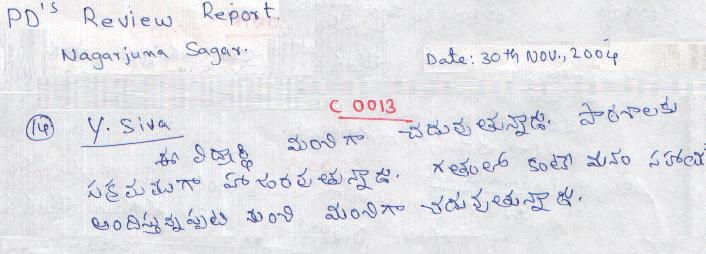 PD's Review Report.
Nagarjuna Sagar.
Date: 30th NOV., 2004
C 0013
(14) Y. Siva
ఈ విద్యార్థి మంచిగా చదువుతున్నాడు. పాఠశాలకు
సక్రమముగా హాజరవుతున్నాడు. గతంలో కంటే మనం సహాయ
అందిస్తున్నప్పటి నుంచి మంచిగా చదువుతున్నాడు.